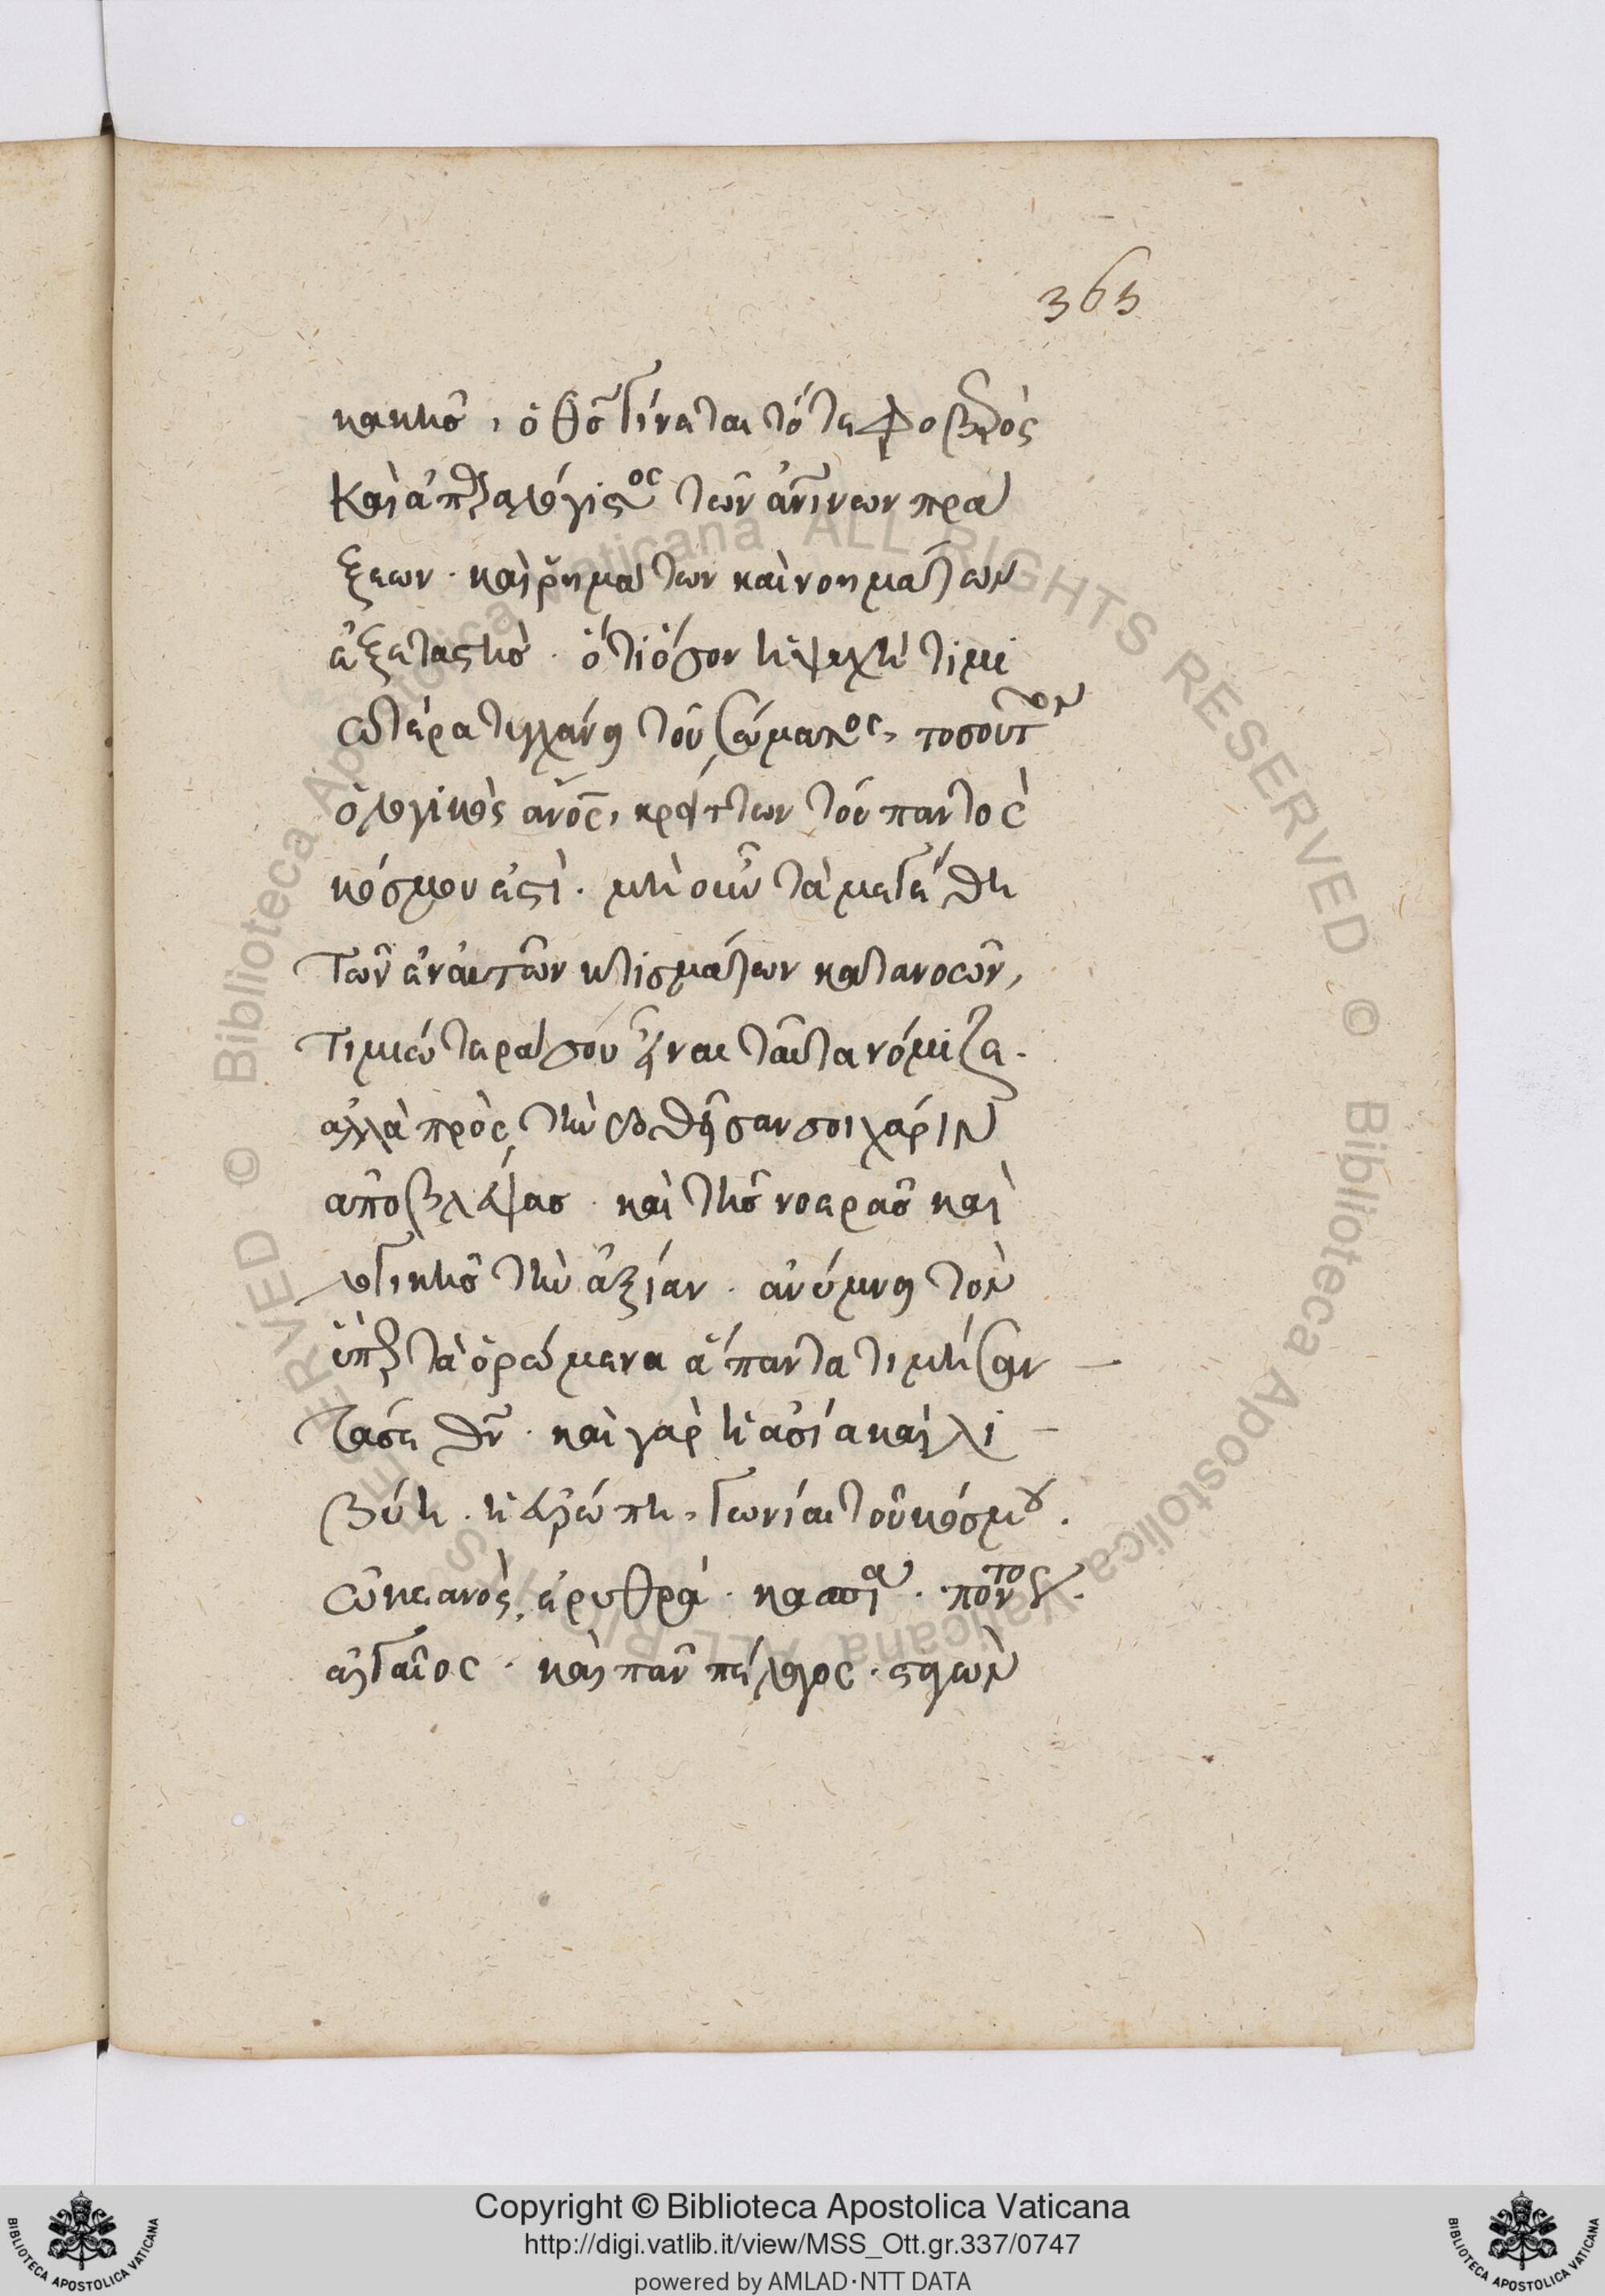 363
κακῆς, ὁ θς γίνεται τότε φοβερὸς
καὶ ἀπαραλόγιστος τῶν ἀνίνων πρά
ξεων. καὶ ῥημάτων καὶ νοημάτων
ἐξεταστής. ὅτι ὅσον ἡ ψυχὴ τιμι
ωτέρα τυγχάνει τοῦ σώματος, τοσοῦτον
ὁ λογικὸς ἄνος, κρείττων τοῦ παντὸς
κόσμου ἐστὶ. μὴ οὖν τὰ μεγέθη
τῶν ἐν αὐτῶν κτισμάτων κατανοῶν,
τιμιώτερά σου εἶναι ταῦτα νόμιζε.
ἀλλὰ πρὸς τὴν δοθεῖσαν σοι χάριν
ἀποβλέψας. καὶ τῆς νοερᾶς καὶ
λογικῆς τὴν ἀξίαν. ἀνύμνει τὸν
ὑπὲρ τὰ ὁρώμενα ἅπαντα τιμήσαν
τά σε θν. καὶ γὰρ ἡ ἀσία καὶ λι
βύη. ἡ εὐρώπη, γωνίαι τοῦ κόσμου.
ὠκεανὸς, ἐρυθρά. κασπία. πόντος.
αἰγαῖος. καὶ πᾶν πέλαγος. σταγὼν
Copyright © Biblioteca Apostolica Vaticana
http://digi.vatlib.it/view/MSS_Ott.gr.337/0747
powered by AMLAD·NTT DATA